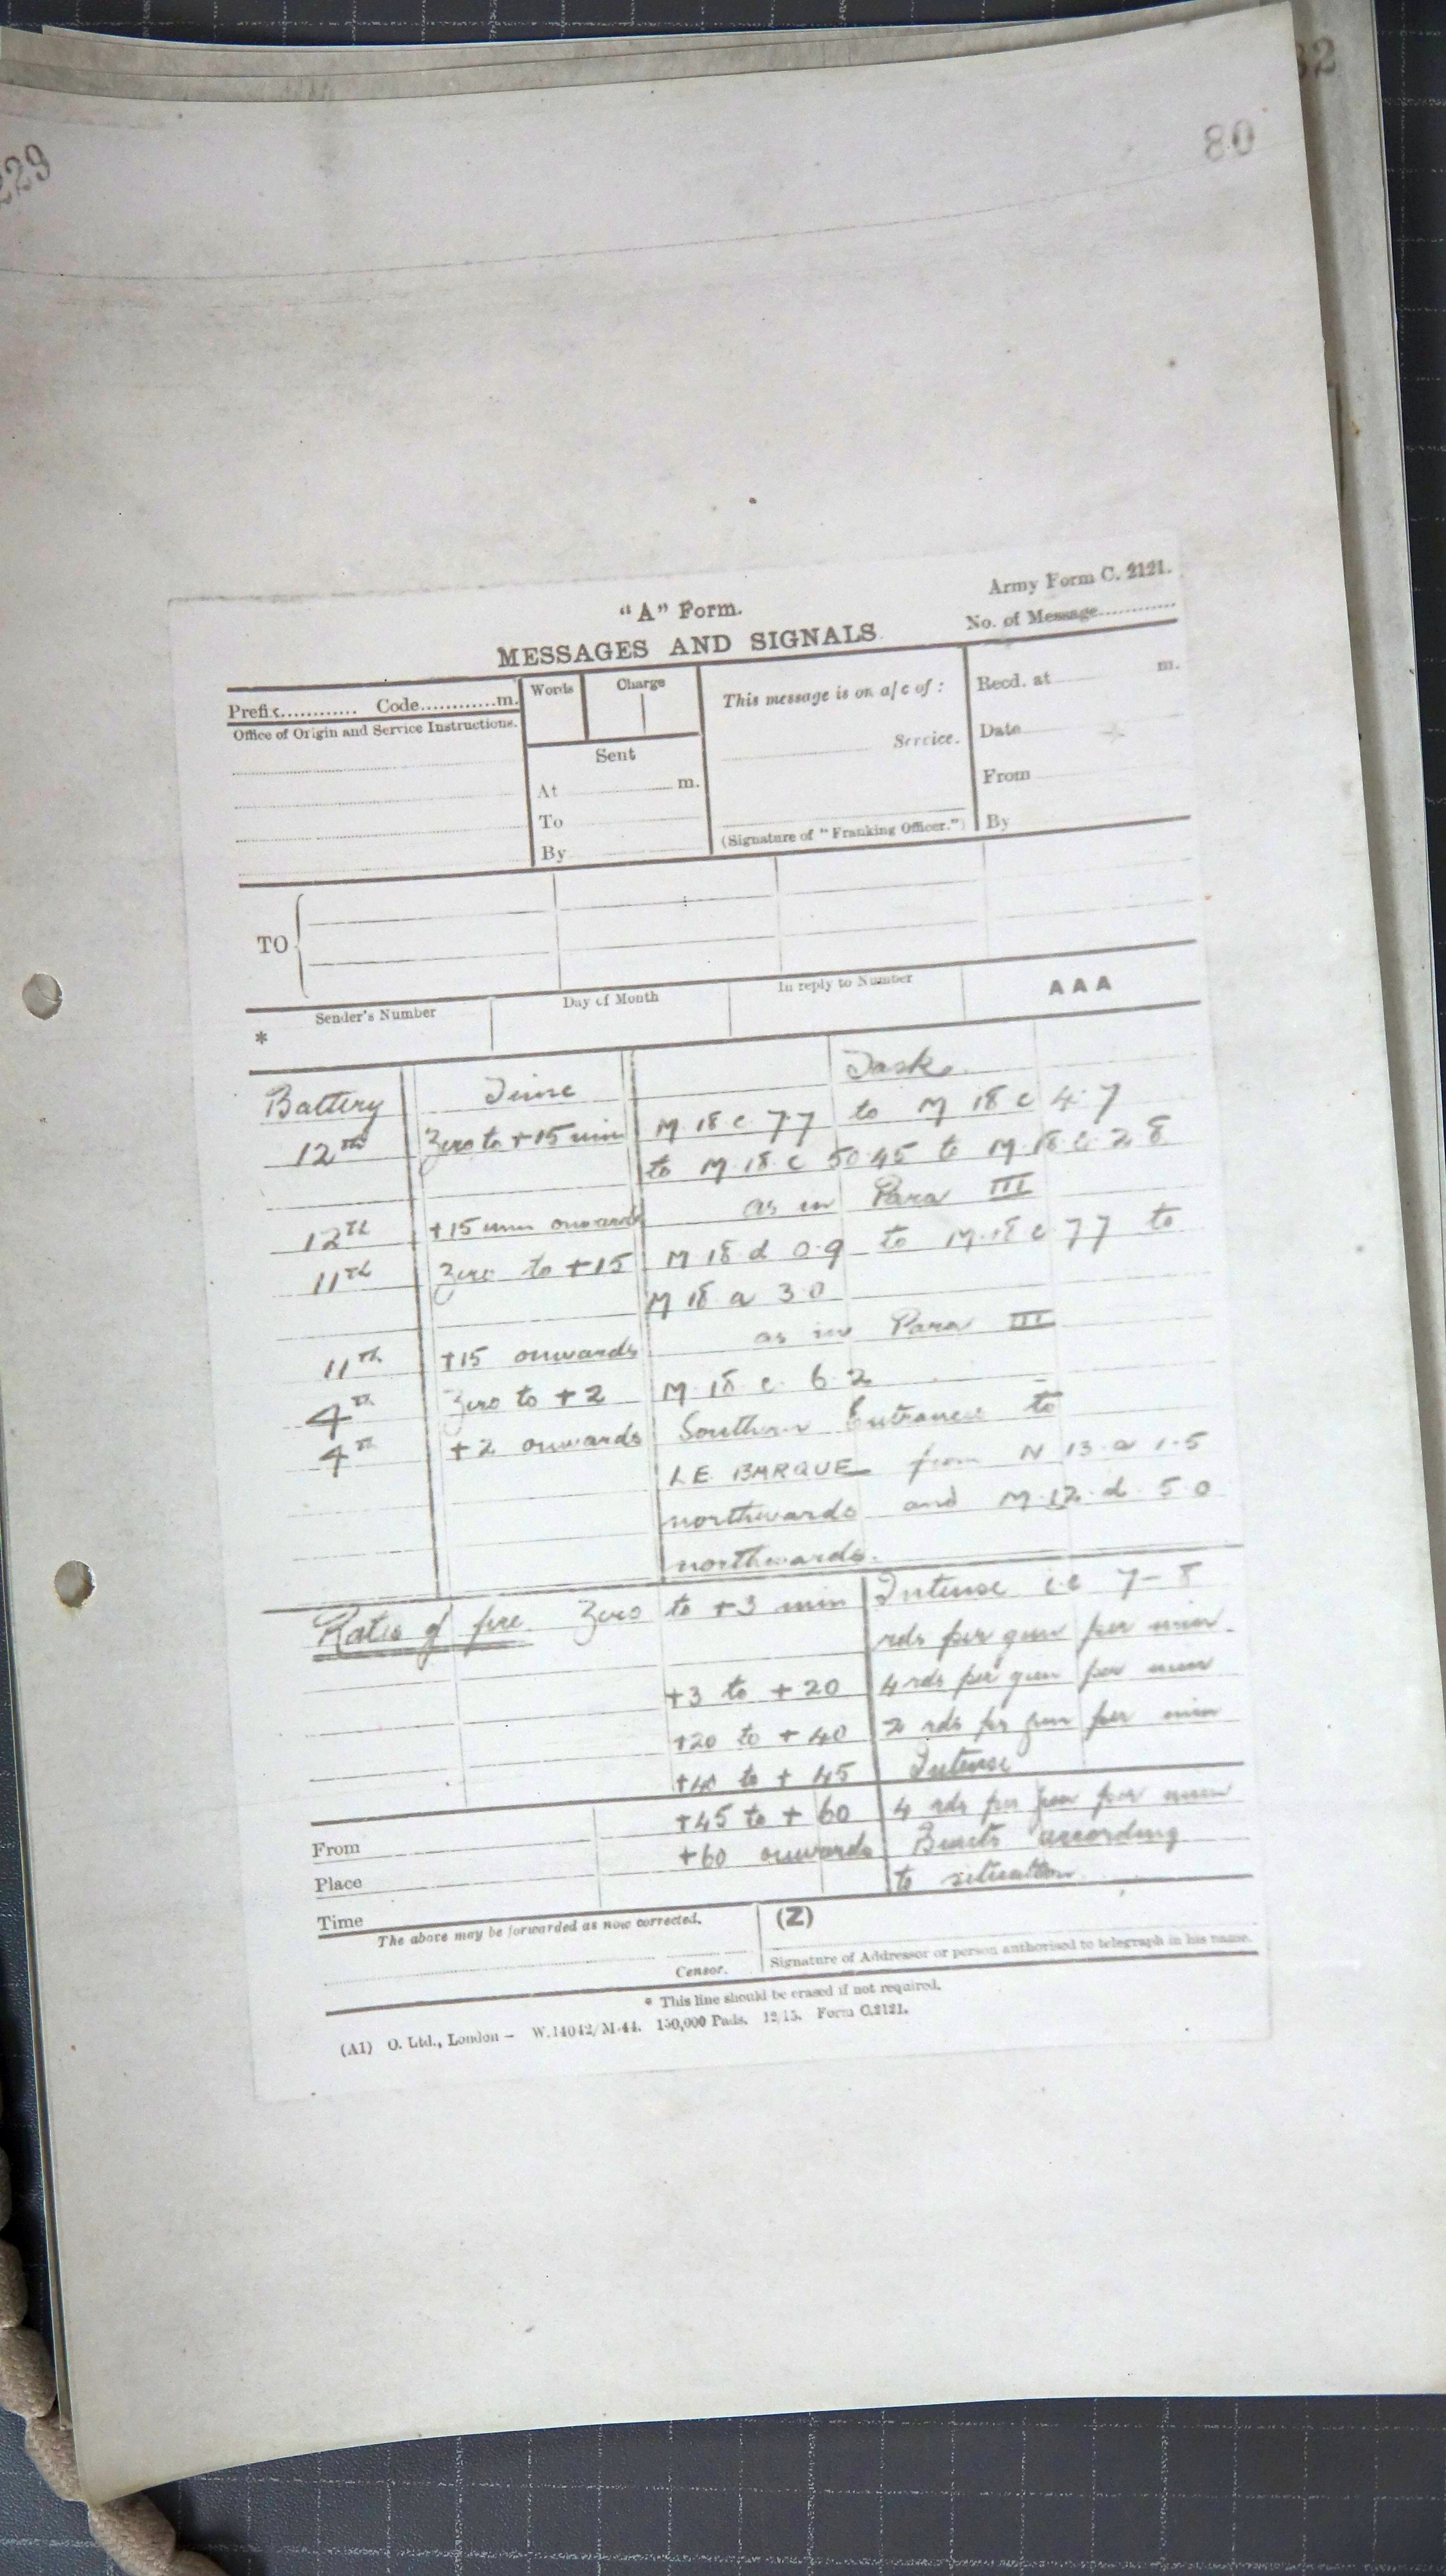 32
229
80
"A" Form.
Army Form C. 2121.
MESSAGES AND SIGNALS
No. of Message............
Prefix............ Code............m.
Words Charge
This message is on a/c of :
Recd. at m.
Office of Origin and Service Instructions.
Sent
Service.
Date
At m.
From
To
(Signature of "Franking Officer.")
By
By
TO
* Sender's Number
Day of Month
In reply to Number
AAA
Battery Time Task
12th Zero to +15 min M 18 c 77 to M 18 c 4.7
to M.18.c 50.45 to M.18.c.2 8
12TH +15 min onwards as in Para III
11th Zero to +15 M 18 d 0.9 to M.18 c 77 to
M 18 a 30
11TH +15 onwards as in Para III
4TH Zero to +2 M 18 c. 6.2
4TH +2 onwards Southern Entrance to
LE BARQUE from N 13 a 1.5
northwards and M.12.d.5.0
northwards.
Rates of fire. Zero to +3 min Intense i.e 7-8
rds per gun per min.
+3 to +20 4 rds per gun per min
+20 to +40 2 rds per gun per min
+40 to +45 Intense
+45 to +60 4 rds per gun per min
From
+60 onwards Bursts according
Place
to situation.
Time
The above may be forwarded as now corrected.
(Z)
Censor.
Signature of Addressor or person authorised to telegraph in his name.
* This line should be erased if not required.
(A1) O. Ltd., London – W.14042/M.44. 150,000 Pads. 12/15. Form C.2121.